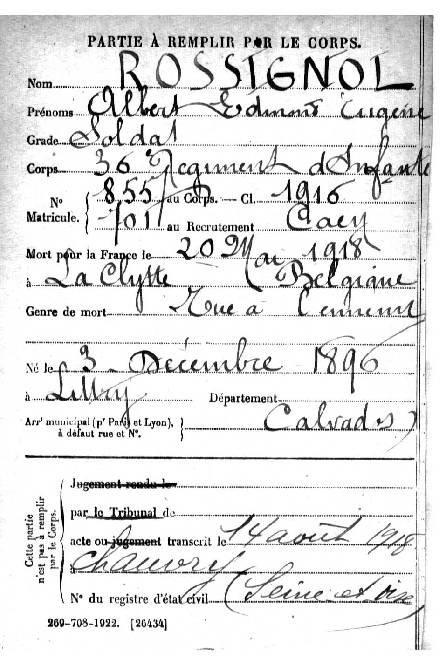 PARTIE À REMPLIR PAR LE CORPS.
Nom ROSSIGNOL
Prénoms Albert Edmond Eugène
Grade Soldat
Corps 36 Régiment d'Infanterie
N° Matricule. { 8557 au Corps. — Cl. 1916
701 au Recrutement Caen
Mort pour la France le 20 Mai 1918
à La Clytte (Belgique
Genre de mort Tué à l'ennemi
Né le 3 Décembre 1896
à Littry Département Calvados)
Arr' municipal (p' Paris et Lyon), à défaut rue et N°. }
Cette partie n'est pas à remplir par le Corps.
Jugement rendu le
par le Tribunal de
acte ou jugement transcrit le 14 août 1918
à Chauvry
N° du registre d'état civil (Seine et Oise
269-708-1922. [26434]